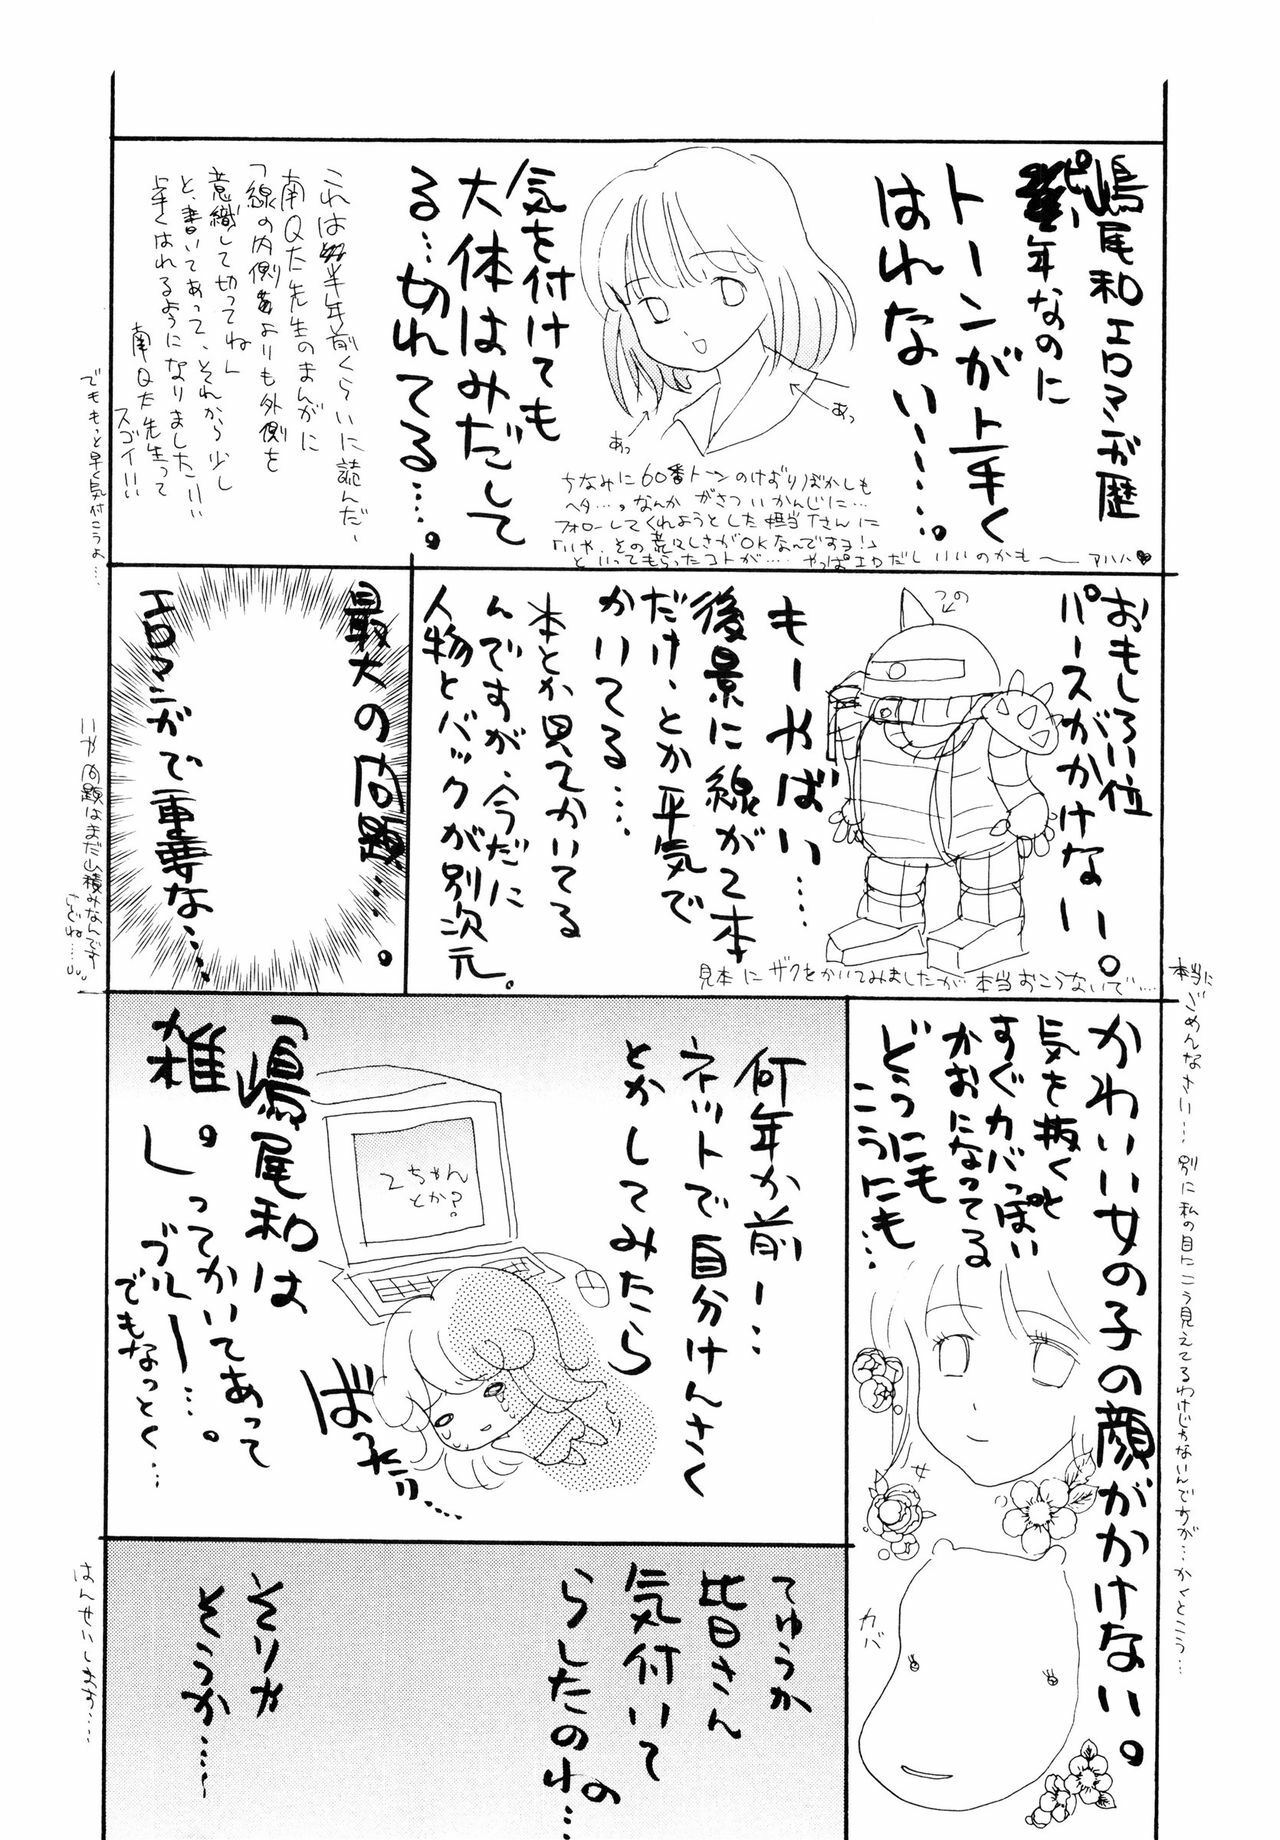 嶋尾和エロマンガ歴
ピー年なのに
トーンが上手く
はれない……。
気を付けても
大体はみだして
る…切れてる…。
あっ
あっ
ちなみに60番トーンのけずりぼかしも
ヘタ…。なんか がさつ いかんじに…
フォローしてくれようとした担当Tさんに
「いや、その荒々しさがOKなんですヨ!」
といってもらったコトが… やっぱエロだしいいのかも〜 アハハ♥
これは半年前くらいに読んだ、
南Q太先生のまんがに
「線の内側よりも外側を
意織して切ってね」
と、書いてあって、それから少し
上手くはれるようになりました!!
南Q太先生って
スゴイ!!
でももっと早く気付こうよ…
おもしろい位
パースがかけない。
つの
もーやばい…
後景に線が2本
だけ、とか平気で
かいてる…
本とか見てかいてる
んですが、今だに
人物とバックが別次元。
見本にザクをかいてみましたが 本当おこらないで…
最大の問題…。
エロマンガで重要な…
いや問題はまだ山積みなんです
けどね…
かわいい女の子の顔がかけない。
気を抜くと
すぐカバっぽい
かおになってる
どっにも
こうにも…
女
カバ
本当に
ごめんなさい… 別に私の目にこう見えてるわけじゃないんですが…かくとこう…
何年か前ー…
ネットで自分けんさく
とかしてみたら
2ちゃん
とか?
「嶋尾和は
雑。」ってかいてあって
ブルー…。
でもなっとく…
ばったり…
てゆうか
皆さん
気付いて
らしたのね…
そりゃ
そうか…
はんせいします…